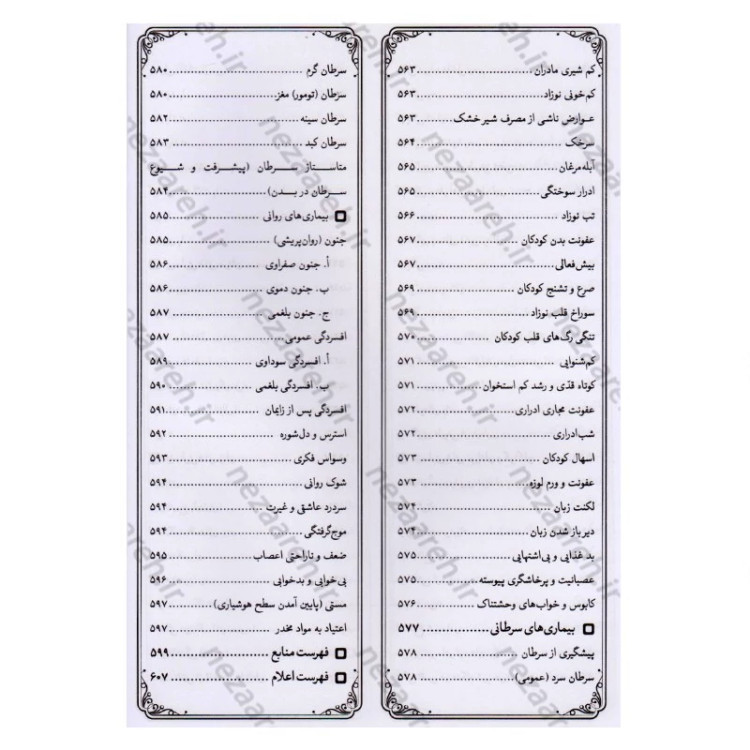 کم شیری مادران ........ ۵۶۳
کم‌خونی نوزاد ........ ۵۶۳
عوارض ناشی از مصرف شیر خشک ........ ۵۶۳
سرخک ........ ۵۶۴
آبله‌مرغان ........ ۵۶۵
ادرار سوختگی ........ ۵۶۵
تب نوزاد ........ ۵۶۶
عفونت بدن کودکان ........ ۵۶۷
بیش‌فعالی ........ ۵۶۷
صرع و تشنج کودکان ........ ۵۶۹
سوراخ قلب نوزاد ........ ۵۶۹
تنگی رگ‌های قلب کودکان ........ ۵۷۰
کم‌شنوایی ........ ۵۷۱
کوتاه قدّی و رشد کم استخوان ........ ۵۷۱
عفونت مجاری ادراری ........ ۵۷۲
شب‌ادراری ........ ۵۷۲
اسهال کودکان ........ ۵۷۳
عفونت و ورم لوزه ........ ۵۷۳
لکنت زبان ........ ۵۷۴
دیر باز شدن زبان ........ ۵۷۴
بد غذایی و بی‌اشتهایی ........ ۵۷۵
عصبانیت و پرخاشگری پیوسته ........ ۵۷۵
کابوس و خواب‌های وحشتناک ........ ۵۷۶
بیماری‌های سرطانی ........ ۵۷۷
پیشگیری از سرطان ........ ۵۷۸
سرطان سرد (عمومی) ........ ۵۷۸
سرطان گرم ........ ۵۸۰
سرطان (تومور) مغز ........ ۵۸۰
سرطان سینه ........ ۵۸۲
سرطان کبد ........ ۵۸۳
متاستاز سرطان (پیشرفت و شیوع
سرطان در بدن) ........ ۵۸۴
بیماری‌های روانی ........ ۵۸۵
جنون (روان‌پریشی) ........ ۵۸۵
أ. جنون صفراوی ........ ۵۸۶
ب. جنون دموی ........ ۵۸۶
ج. جنون بلغمی ........ ۵۸۷
افسردگی عمومی ........ ۵۸۷
أ. افسردگی سوداوی ........ ۵۸۹
ب. افسردگی بلغمی ........ ۵۹۰
افسردگی پس از زایمان ........ ۵۹۱
استرس و دل‌شوره ........ ۵۹۲
وسواس فکری ........ ۵۹۳
شوک روانی ........ ۵۹۴
سردرد عاشقی و غیرت ........ ۵۹۴
موج‌گرفتگی ........ ۵۹۴
ضعف و ناراحتی اعصاب ........ ۵۹۵
بی‌خوابی و بدخوابی ........ ۵۹۶
مستی (پایین آمدن سطح هوشیاری) ........ ۵۹۷
اعتیاد به مواد مخدر ........ ۵۹۷
فهرست منابع ........ ۵۹۹
فهرست اعلام ........ ۶۰۷
nezaareh.ir